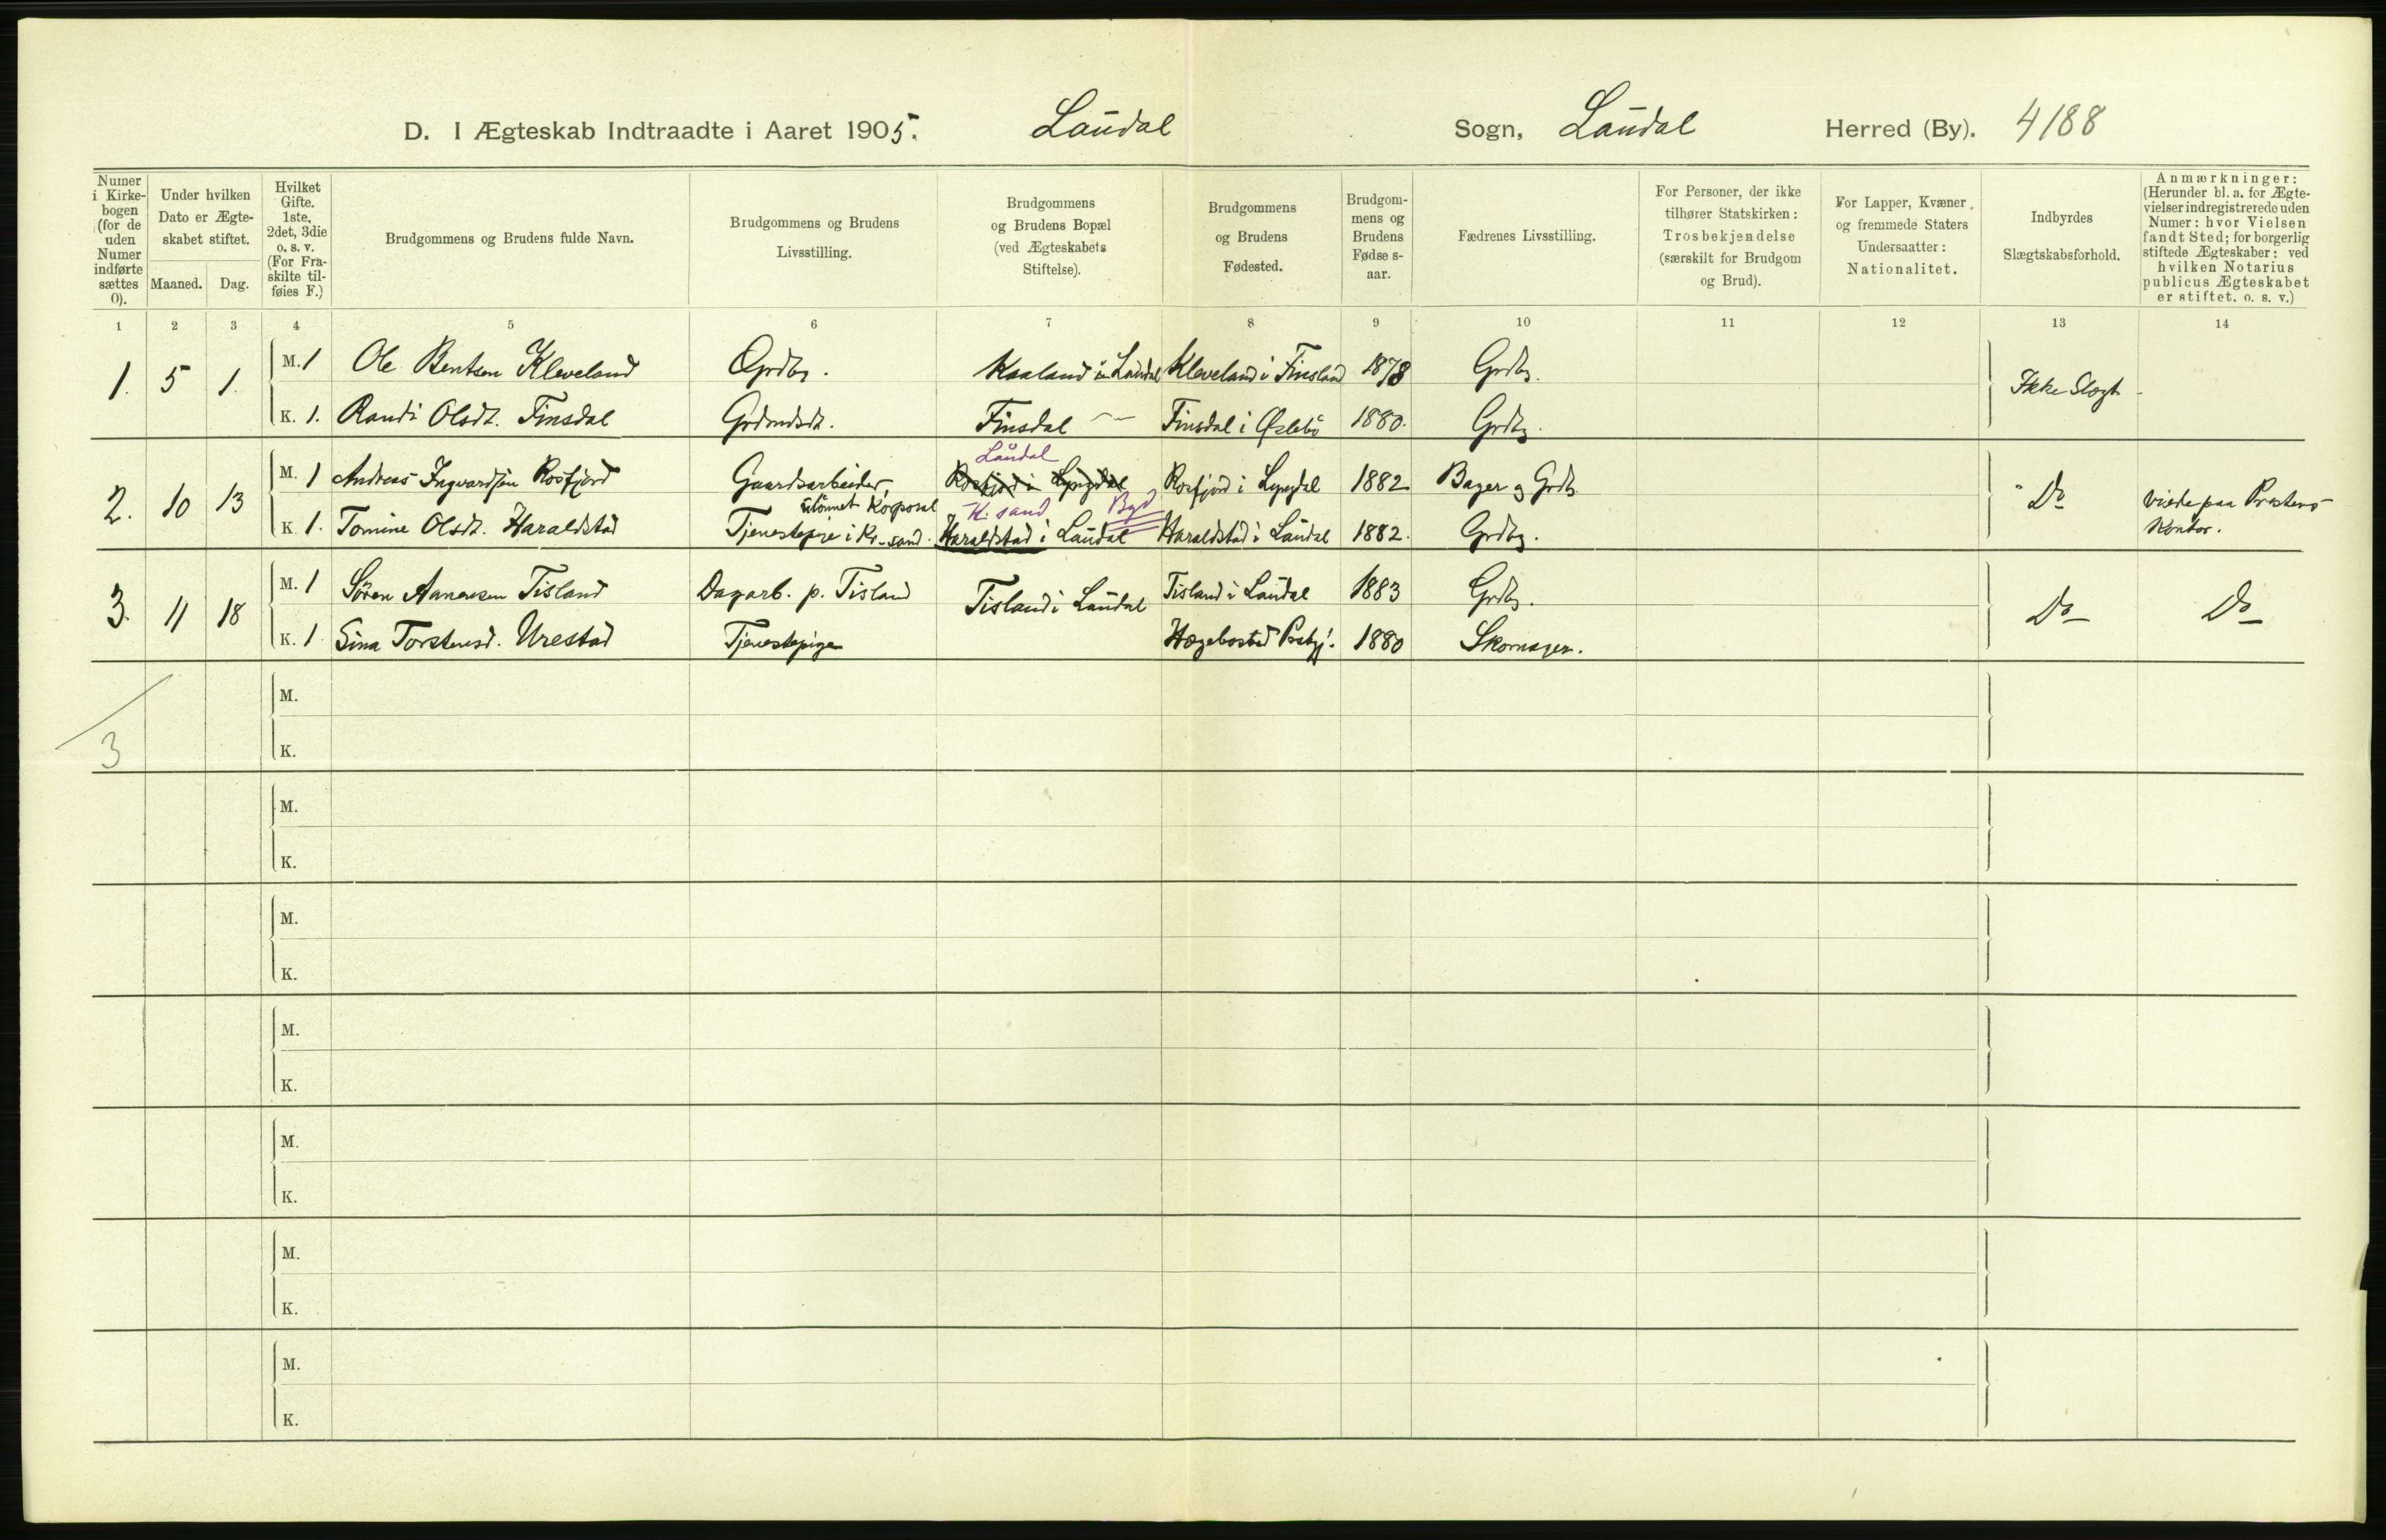 D. I Ægteskab Indtraadte i Aaret 1905. Laudal Sogn, Laudal Herred (By). 4188
Numer i Kirkebogen (for de uden Numer indførte sættes 0).
Under hvilken Dato er Ægteskabet stiftet.
Maaned. Dag.
Hvilket Gifte. 1ste, 2det, 3die o. s. v. (For Fraskilte tilføies F.)
Brudgommens og Brudens fulde Navn.
Brudgommens og Brudens Livsstilling.
Brudgommens og Brudens Bopæl (ved Ægteskabets Stiftelse).
Brudgommens og Brudens Fødested.
Brudgommens og Brudens Fødselsaar.
Fædrenes Livsstilling.
For Personer, der ikke tilhører Statskirken: Trosbekjendelse (særskilt for Brudgom og Brud).
For Lapper, Kvæner og fremmede Staters Undersaatter: Nationalitet.
Indbyrdes Slægtskabsforhold.
Anmærkninger: (Herunder bl. a. for Ægtevielser indregistrerede uden Numer: hvor Vielsen fandt Sted; for borgerlig stiftede Ægteskaber: ved hvilken Notarius publicus Ægteskabet er stiftet. o. s. v.)
1 2 3 4 5 6 7 8 9 10 11 12 13 14
1. 5 1. M. 1 Ole Bentsen Kleveland Grdbr. Kaaland i Laudal Kleveland i Finsland 1878 Grdbr. Ikke Slægt
K. 1. Randi Olsdt. Finsdal Grdmdsdt. Finsdal — Finsdal i Øslebø 1880. Grdbr.
Laudal
2. 10 13 M. 1 Andreas Ingvardsen Rosfjord Gaardsarbeider, Rosfjord i Lyngdal Rosfjord i Lyngdal 1882 Bager og Grdb. Do Viede paa Prestens Kontor.
ulønnet Korporal K. sand Byd
K. 1. Tomine Olsdt. Haraldstad Tjenestepige i Kr-sand. Haraldstad i Laudal Haraldstad i Laudal 1882. Grdbr.
3. 11 18 M. 1 Sören Aanensen Tisland Dagarb. p. Tisland Tisland i Laudal Tisland i Laudal 1883 Grdbr. Do Do
K. 1 Sina Torstensd. Urestad Tjenestepige Hægebostad Prstgj. 1880 Skomager.
M.
3 K.
M.
K.
M.
K.
M.
K.
M.
K.
M.
K.
M.
K.